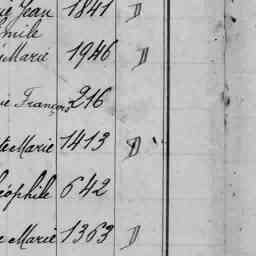 Jean 1841 D
Emile
Marie 1946 D
ie François 216
te Marie 1413 D
éophile 642
e Marie 1363 D